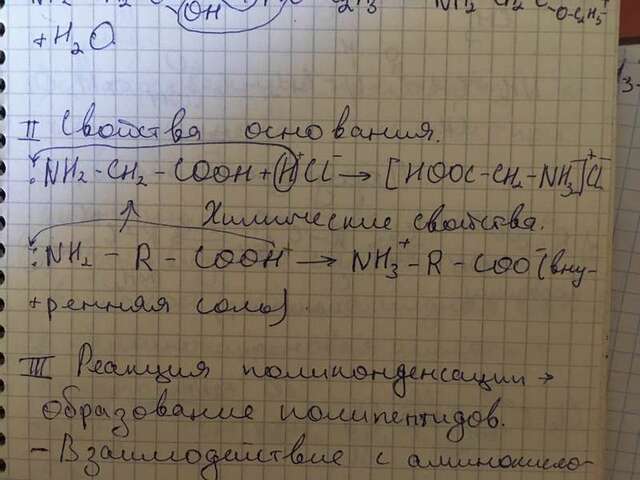 OH O-C2H5
+H2O
II Свойства основания.
:NH2-CH2-COOH+HCl→[HOOC-CH2-NH3]+Cl-
Химические свойства.
:NH2-R-COOH→NH3+-R-COO-(вну-
тренняя соль)
III Реакция поликонденсации→
образование полипептидов.
-Взаимодействие с аминокисло-